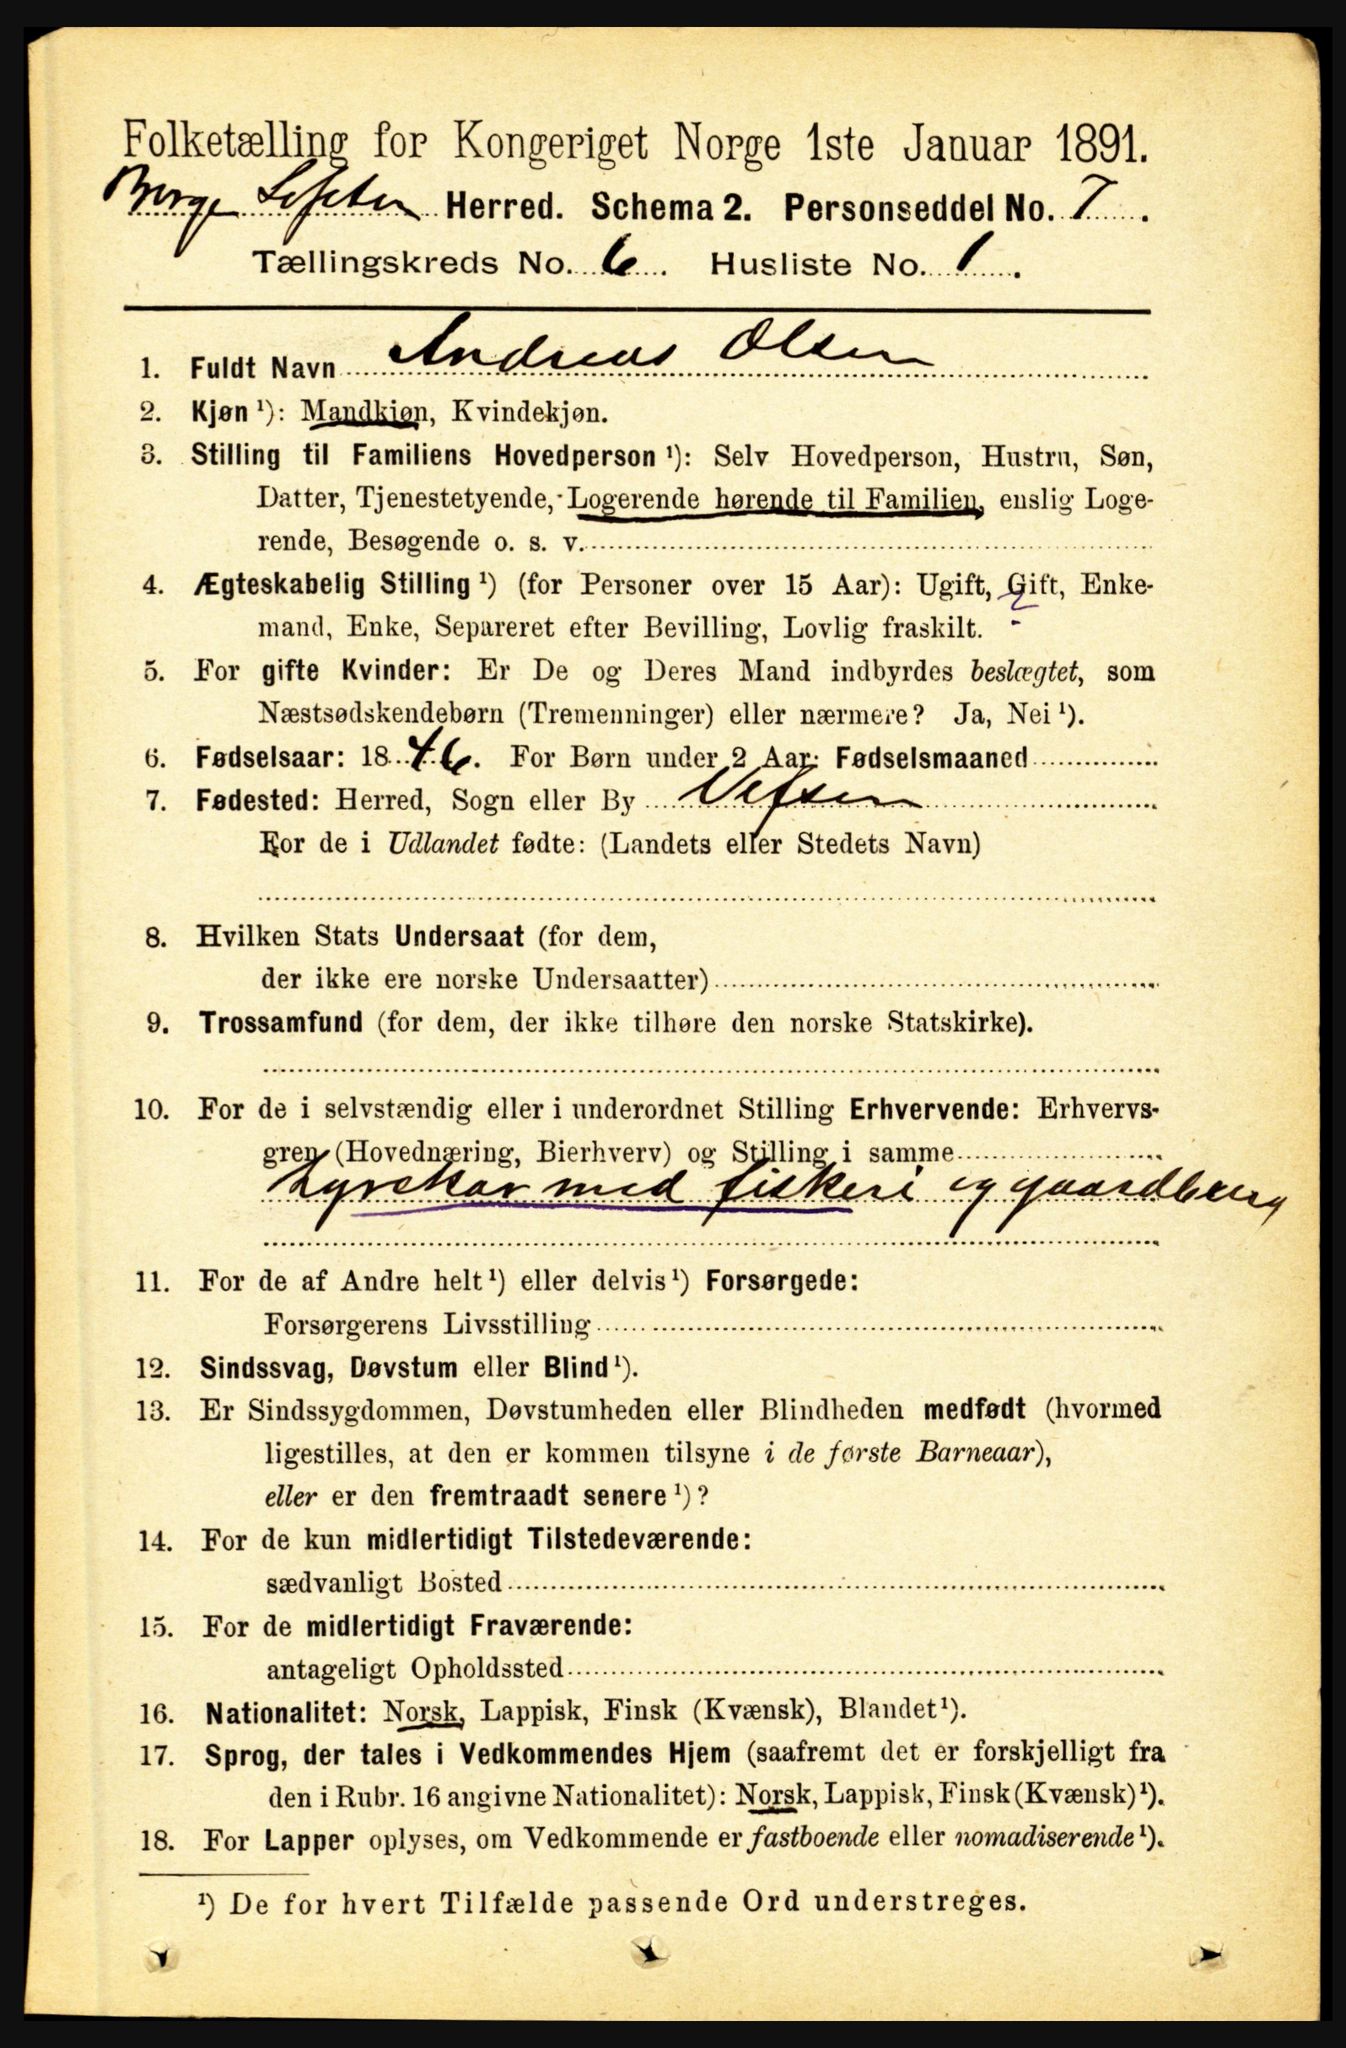 Folketælling for Kongeriget Norge 1ste Januar 1891.
Borge Lofoten Herred. Schema 2. Personseddel No. 7.
Tællingskreds No. 6. Husliste No. 1.
1. Fuldt Navn Andreas Olsen
2. Kjøn ¹): Mandkjøn, Kvindekjøn.
3. Stilling til Familiens Hovedperson ¹): Selv Hovedperson, Hustru, Søn,
Datter, Tjenestetyende, Logerende hørende til Familien, enslig Loge-
rende, Besøgende o. s. v.
4. Ægteskabelig Stilling ¹) (for Personer over 15 Aar): Ugift, Gift, Enke-
mand, Enke, Separeret efter Bevilling, Lovlig fraskilt.
5. For gifte Kvinder: Er De og Deres Mand indbyrdes beslægtet, som
Næstsødskendebørn (Tremenninger) eller nærmere? Ja, Nei ¹).
6. Fødselsaar: 1846. For Børn under 2 Aar: Fødselsmaaned
7. Fødested: Herred, Sogn eller By Vefsen
For de i Udlandet fødte: (Landets eller Stedets Navn)
8. Hvilken Stats Undersaat (for dem,
der ikke ere norske Undersaatter)
9. Trossamfund (for dem, der ikke tilhøre den norske Statskirke).
10. For de i selvstændig eller i underordnet Stilling Erhvervende: Erhvervs-
gren (Hovednæring, Bierhverv) og Stilling i samme
med fiskeri og gaardbrug
11. For de af Andre helt ¹) eller delvis ¹) Forsørgede:
Forsørgerens Livsstilling
12. Sindssvag, Døvstum eller Blind ¹).
13. Er Sindssygdommen, Døvstumheden eller Blindheden medfødt (hvormed
ligestilles, at den er kommen tilsyne i de første Barneaar),
eller er den fremtraadt senere ¹)?
14. For de kun midlertidigt Tilstedeværende:
sædvanligt Bosted
15. For de midlertidigt Fraværende:
antageligt Opholdssted
16. Nationalitet: Norsk, Lappisk, Finsk (Kvænsk), Blandet ¹).
17. Sprog, der tales i Vedkommendes Hjem (saafremt det er forskjelligt fra
den i Rubr. 16 angivne Nationalitet): Norsk, Lappisk, Finsk (Kvænsk) ¹).
18. For Lapper oplyses, om Vedkommende er fastboende eller nomadiserende ¹).
¹) De for hvert Tilfælde passende Ord understreges.